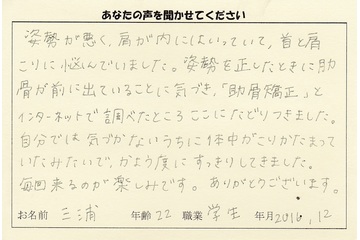 あなたの声を聞かせてください
姿勢が悪く、肩が内にはいっていて、首と肩
こりに悩んでいました。姿勢を正したときに肋
骨が前に出ていることに気づき、「肋骨矯正」と
インターネットで調べたところここにたどりつきました。
自分では気づかないうちに体中がこりかたまって
いたみたいで、かよう度にすっきりしてきました。
毎回来るのが楽しみです。ありがとうございます。
お名前 三浦 年齢 22 職業 学生 年月 2016.12